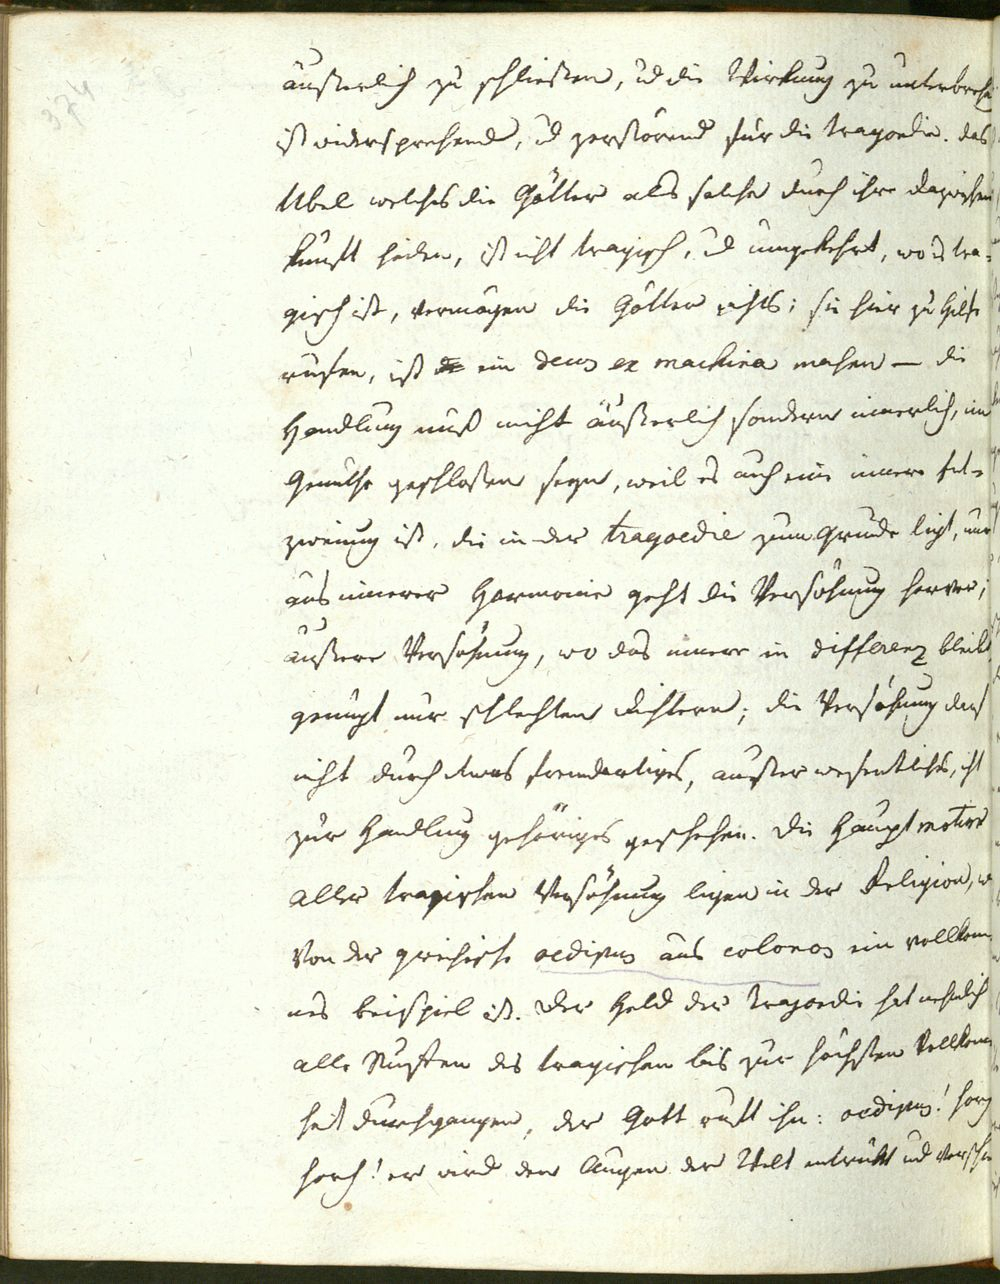 374
äusserlich zu schliessen, ud die Wirkung zu unterbrechen
ist widersprechend, ud zerstörend für die tragoedie. das
Übel welches die Götter als solche durch ihre dazwischen
kunft heilen, ist nicht tragisch, ud umgekehrt, wo es tra-
gisch ist, vermögen die Götter nichts; sie hier zu Hilfe
rufen, ist ein deus ex machina machen — die
Handlung muß nicht äusserlich sondern innerlich, im
Gemüthe geschlossen seyn, weil es auch eine innere Ent-
zweiung ist, die in der tragoedie zum Grunde ligt, nur
aus innerer Harmonie geht die Versöhnung hervor;
äussere Versöhnung, wo das innere in differenz bleibt
genügt nur schlechten Dichtern; die Versöhnung darf
nicht durch etwas fremdartiges, ausser wesentliches, nicht
zur Handlung gehöriges geschehen. Die Hauptmotive
aller tragischen Versöhnung ligen in der Religion, wo
von der griechische oedipus aus colonos ein vollkom
nes beispiel ist. Der Held der tragoedie hat nehmlich
alle Stuffen des tragischen bis zur höchsten Vollkomen
heit durchgangen, der Gott ruft ihn: oedipus! horch
horch! er wird den Augen der Welt entrükt und versch